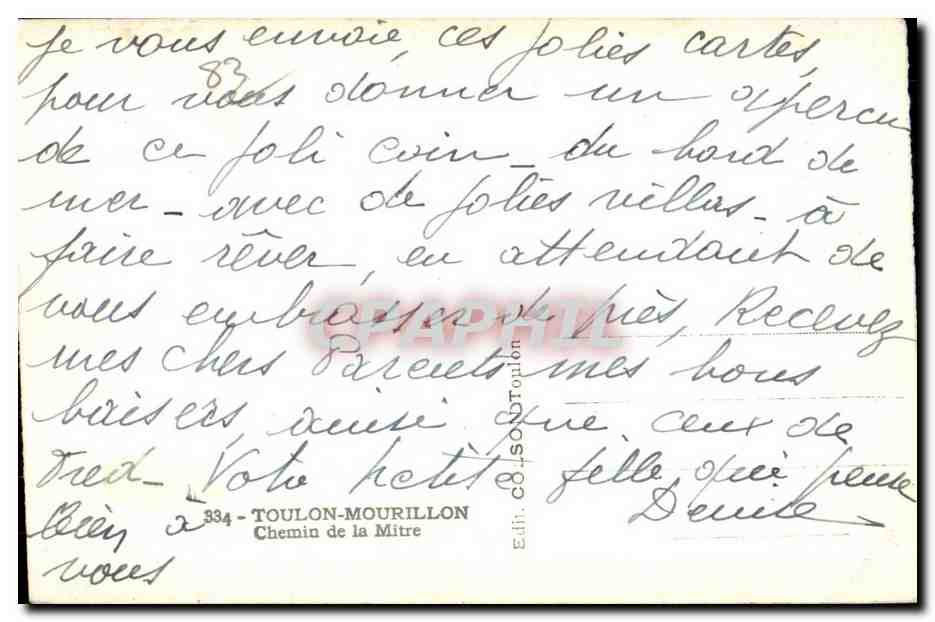 Je vous envoie, ces jolies cartes,
83
pour vous donner un aperçu
de ce joli coin - du bord de
mer - avec de jolies villas - à
faire rêver, en attendant de
vous embrasser de près, Recevez
CPAPHIL
mes chers Parents mes bons
baisers, ainsi que ceux de
Fred - Votre petite fille qui pense
Denise
bien à
vous
334 - TOULON-MOURILLON
Chemin de la Mitre
Edit. COLSON Toulon